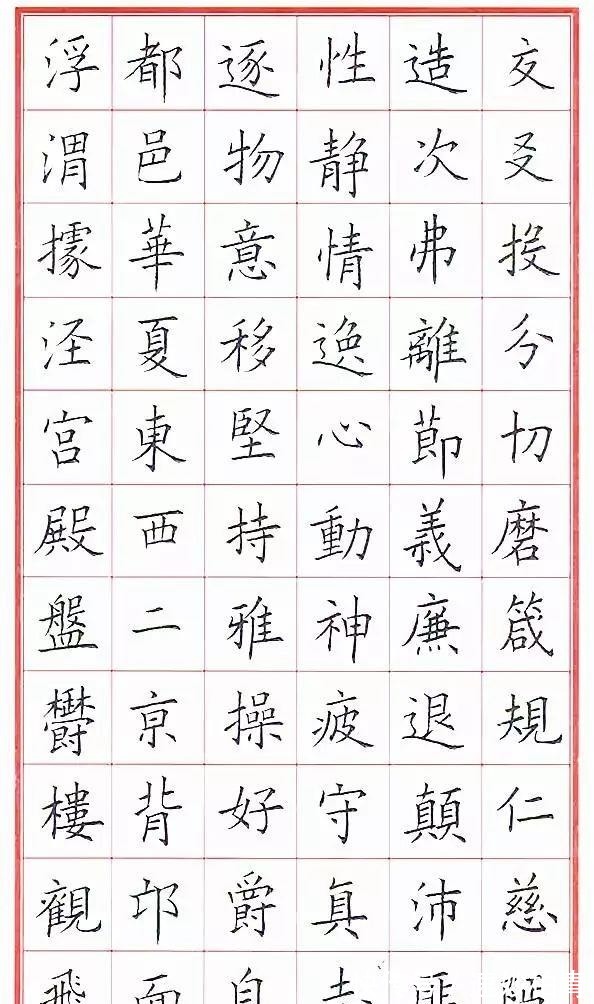 交友投分切磨箴規仁慈
造次弗離節義廉退顛沛匪
性静情逸心動神疲守真志
逐物意移堅持雅操好爵自
都邑華夏東西二亰背邙面
浮渭據涇宫殿盤鬱樓觀飛